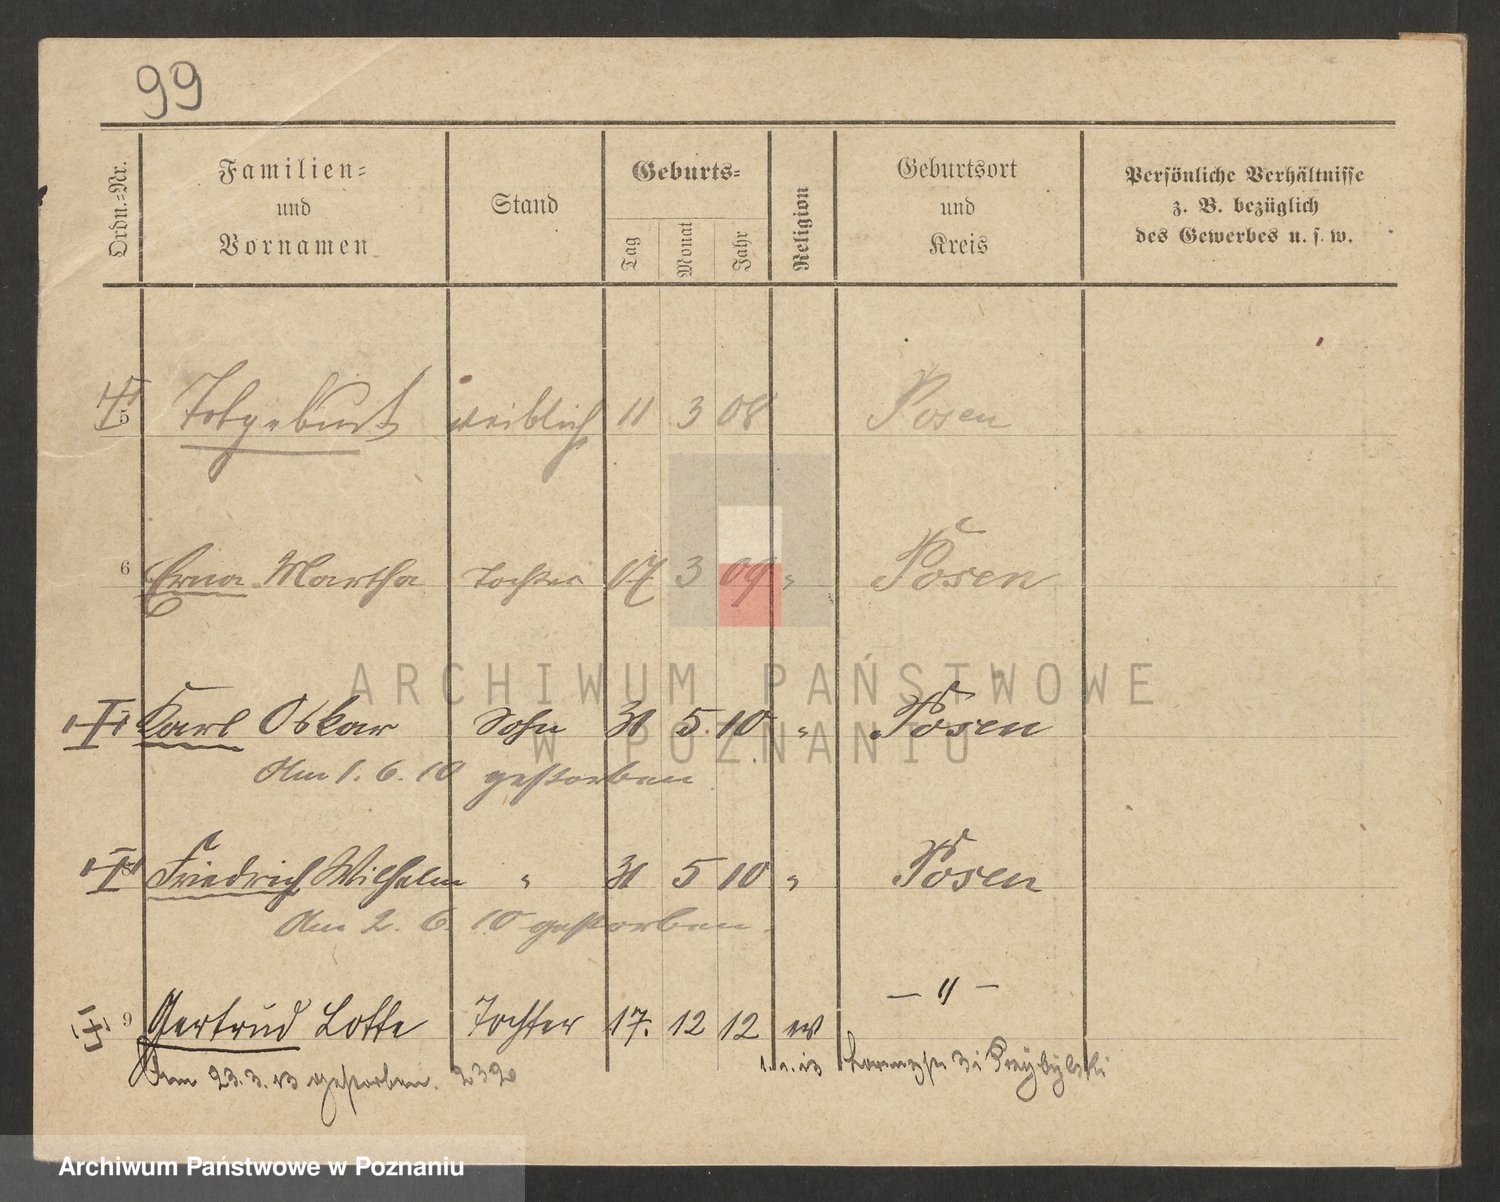 99
Ordn.=Nr.
Familien=
und
Vornamen
Stand
Geburts=
Tag
Monat
Jahr
Religion
Geburtsort
und
Kreis
Persönliche Verhältnisse
z. B. bezüglich
des Gewerbes u. s. w.
5 Totgeburt weiblich 11 3 08 Posen
6 Erna Martha Tochter 17 3 09 " Posen
ARCHIWUM PAŃSTWOWE
W POZNANIU
Karl Oskar Sohn 31 5. 10 " Posen
Am 1. 6. 10 gestorben
8 Friedrich Wilhelm " 31 5 10 " Posen
Am 2. 6. 10 gestorben.
— " —
9 Gertrud Lotte Tochter 17. 12 12 ev
Am 23.3.13 gestorben. 1.1.13
Archiwum Państwowe w Poznaniu